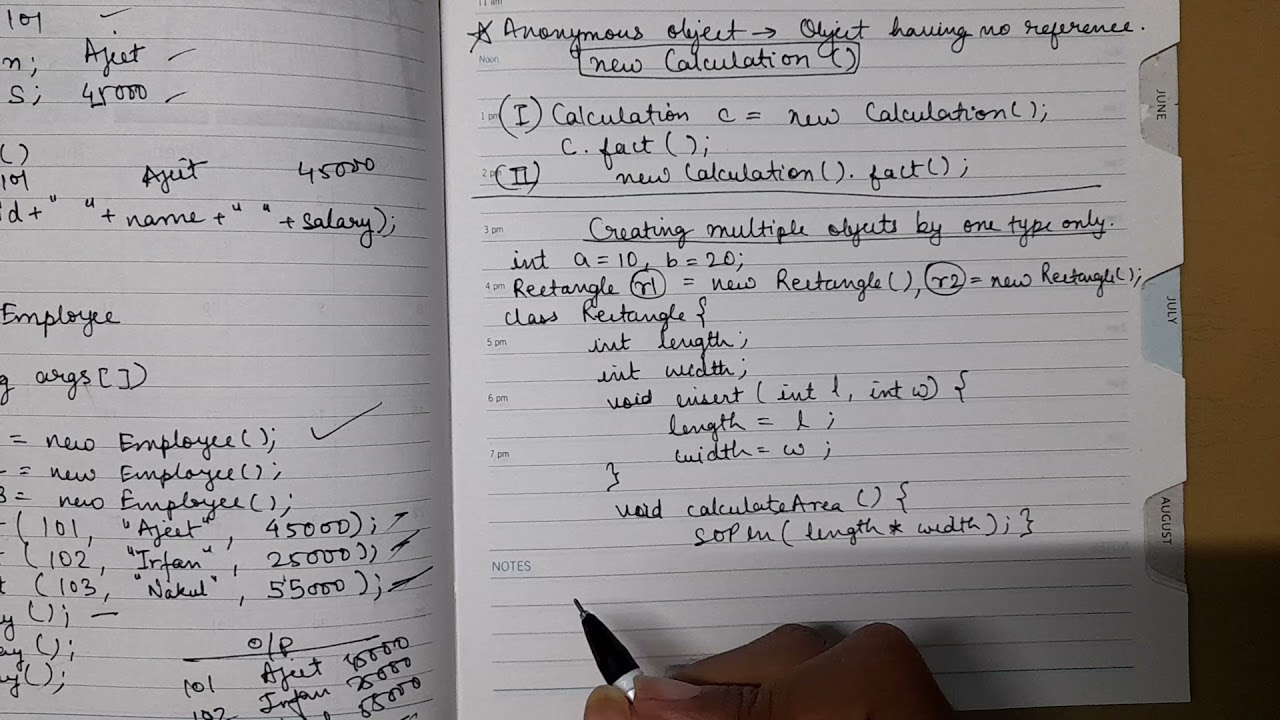 101
n; Ajeet
S; 45000
()
101 Ajeet 45000
id+" "+name+" "+salary);
Employee
g args[])
= new Employee();
= new Employee();
3= new Employee();
(101, "Ajeet", 45000);
(102, "Irfan", 25000);
t (103, "Nakul", 55000);
y();
ay();
ay();
o/p
101 Ajeet 45000
102 Irfan 25000
55000
11 am
* Anonymous object → Object having no reference.
Noon
new Calculation ()
1 pm (I) Calculation c = new Calculation();
c.fact();
2 pm (II) new Calculation().fact();
3 pm Creating multiple objects by one type only.
int a=10, b=20;
4 pm Rectangle r1 = new Rectangle(), r2 = new Rectangle();
class Rectangle {
5 pm int length;
int width;
6 pm void insert (int l, int w) {
length = l ;
7 pm width = w ;
}
void calculateArea () {
SOPln(length * width); }
NOTES
JUNE
JULY
AUGUST